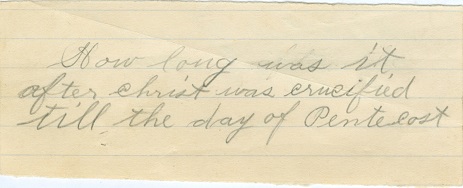 How long was it
after christ was crucified
till the day of Pentecost